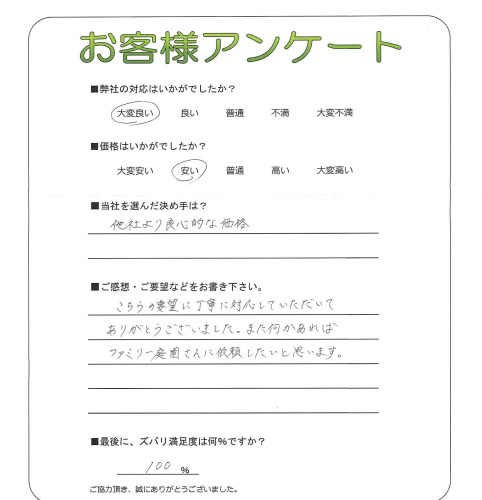 お客様アンケート
■弊社の対応はいかがでしたか？
大変良い 良い 普通 不満 大変不満
■価格はいかがでしたか？
大変安い 安い 普通 高い 大変高い
■当社を選んだ決め手は？
他社より良心的な価格
■ご感想・ご要望などをお書き下さい。
こちらの要望に丁寧に対応していただいて
ありがとうございました。また何かあれば
ファミリー庭園さんに依頼したいと思います。
■最後に、ズバリ満足度は何%ですか？
100 %
ご協力頂き、誠にありがとうございました。